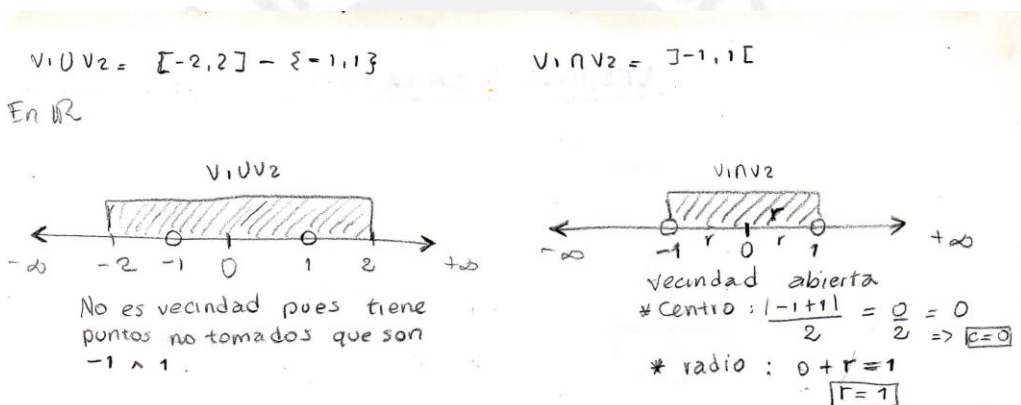 V1 U V2 = [-2,2] - {-1,1}
V1 ∩ V2 = ]-1,1[
En ℝ
V1 U V2
-∞ -2 -1 0 1 2 +∞
No es vecindad pues tiene
puntos no tomados que son
-1 ∧ 1.
V1 ∩ V2
r
r r
-∞ -1 0 1 +∞
vecindad abierta
* Centro : |-1+1|/2 = 0/2 = 0
=> c=0
* radio : 0 + r = 1
r = 1